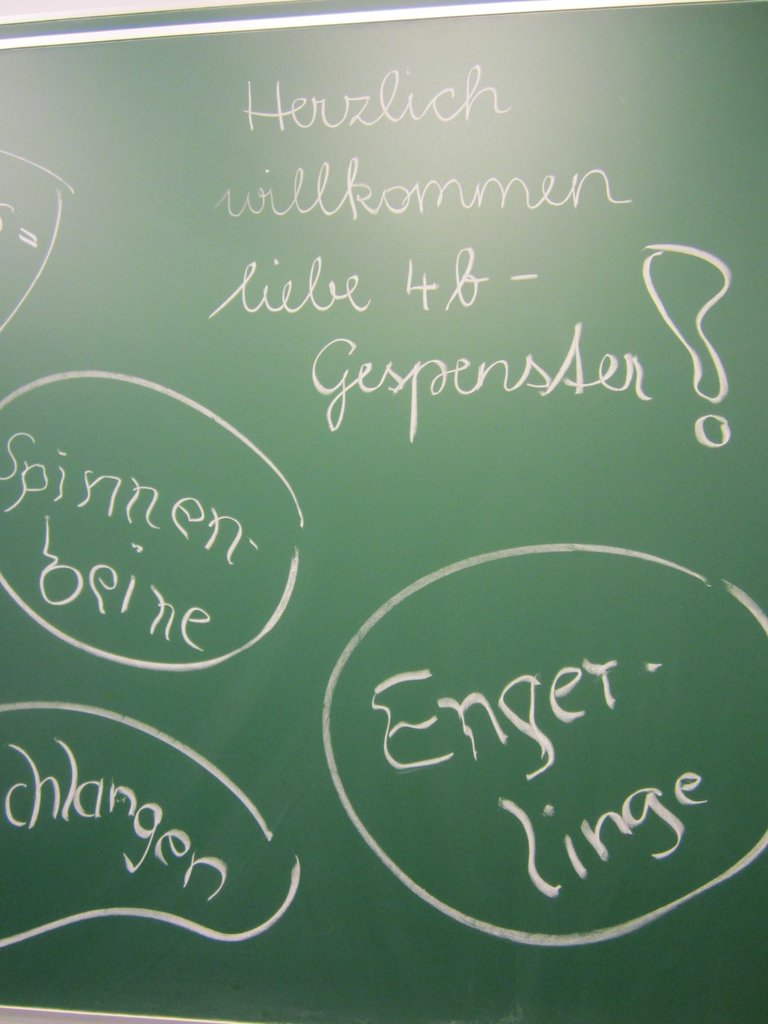 Herzlich
willkommen
liebe 4b-
Gespenster!
Spinnen-
beine
chlangen
Enger-
linge